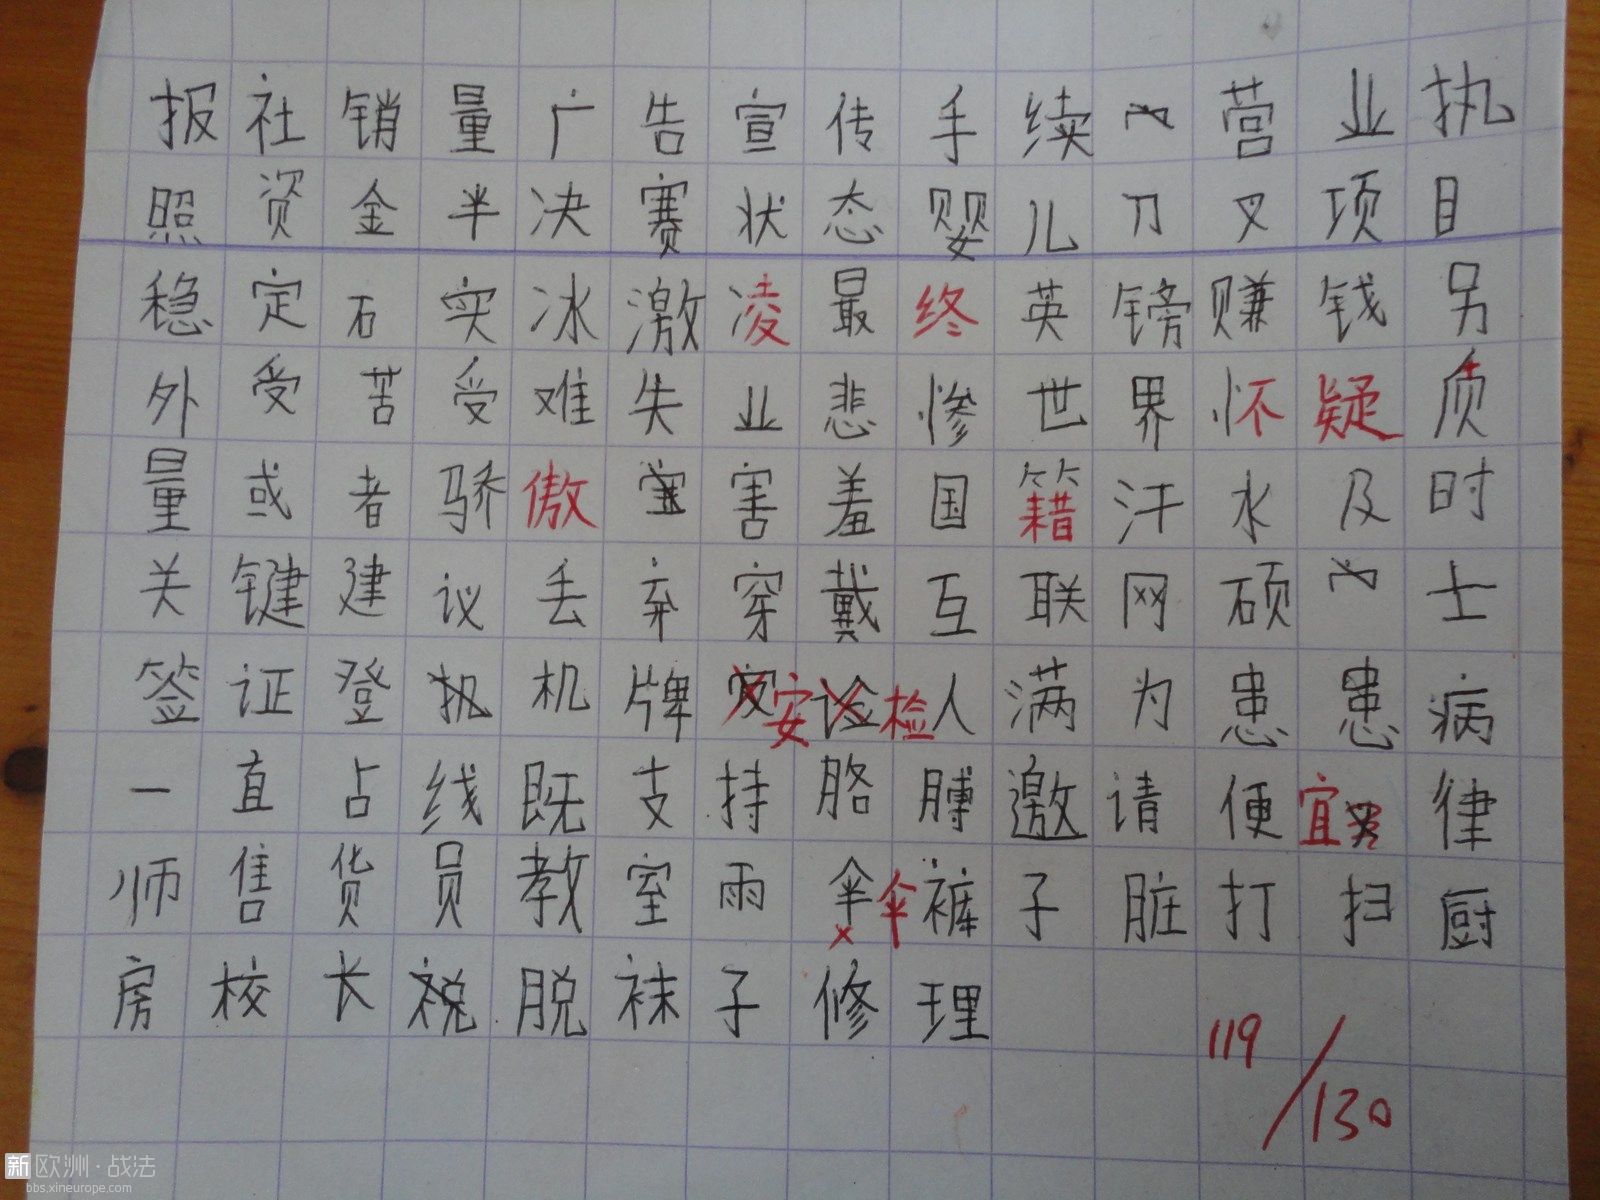 报社销量广告宣传手续营业执
照资金半决赛状态婴儿刀叉项目
稳定石实冰激凌最终英镑赚钱另
外受苦受难失业悲惨世界怀疑质
量或者骄傲害羞国籍汗水及时
关键建议丢弃穿戴互联网硕士
签证登机牌安检人满为患患病
一直占线既支持胳膊邀请便宜律
师售货员教室雨伞伞裤子脏打扫厨
房校长脱袜子修理
119/130
新欧洲·战法
bbs.xineurope.com